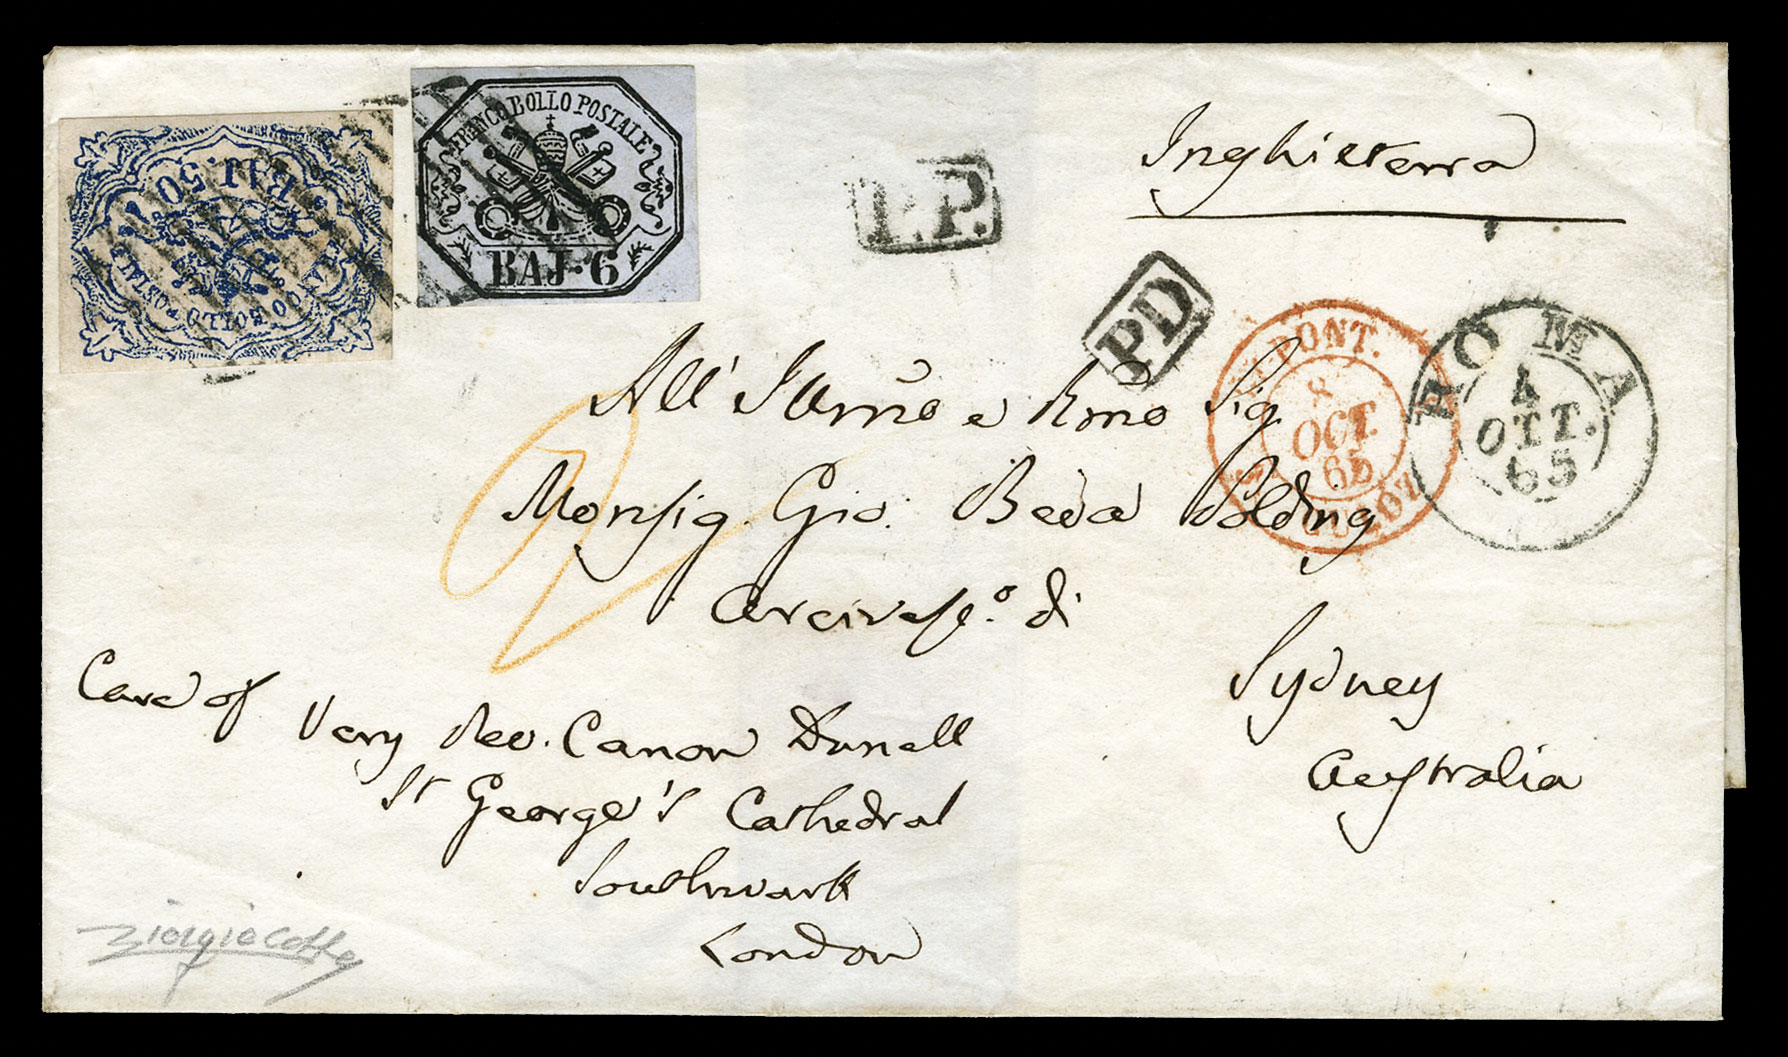 Inghilterra
FRANCOBOLLO POSTALE
BAJ. 6
BAJ. 50
FRANCO BOLLO POSTALE
P.P.
PD
PONT.
8
OCT.
65
CULOZ
ROMA
4
OTT.
65
All' Illmo e Rmo Sig.
Monsig. Gio. Beda Polding
Arcivesco. di
Sydney
Australia
Care of
Very Rev. Canon
St George's Cathedral
Southwark
London